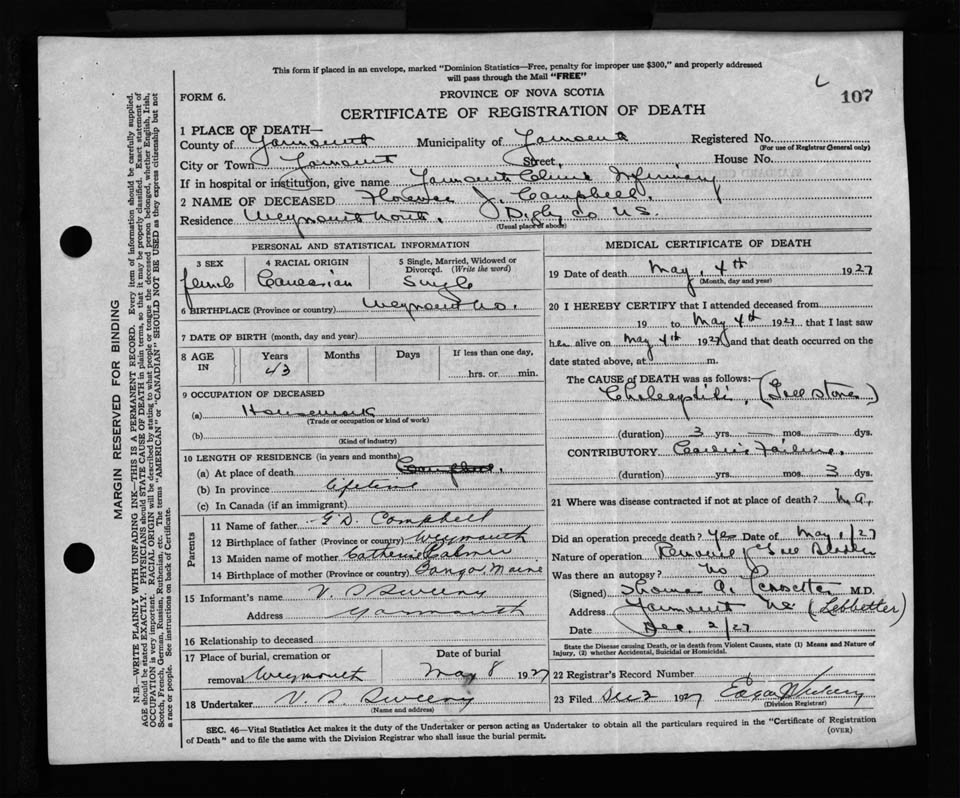 This form if placed in an envelope, marked "Dominion Statistics—Free, penalty for improper use $300," and properly addressed
will pass through the Mail "FREE"
PROVINCE OF NOVA SCOTIA
FORM 6.
107
CERTIFICATE OF REGISTRATION OF DEATH
1 PLACE OF DEATH—
County of Yarmouth Municipality of Yarmouth Registered No.
(For use of Registrar General only)
City or Town Yarmouth Street, House No.
If in hospital or institution, give name Yarmouth Infirmary
2 NAME OF DECEASED Florence J. Campbell
Residence Weymouth North, Digby Co N.S.
(Usual place of abode)
PERSONAL AND STATISTICAL INFORMATION
3 SEX 4 RACIAL ORIGIN 5 Single, Married, Widowed or
Divorced. (Write the word)
female Caucasian Single
6 BIRTHPLACE (Province or country) Weymouth No.
7 DATE OF BIRTH (month, day and year)
8 AGE IN Years Months Days If less than one day,
43 hrs. or min.
9 OCCUPATION OF DECEASED
(a) Housework
(Trade or occupation or kind of work)
(b)
(Kind of industry)
10 LENGTH OF RESIDENCE (in years and months)
(a) At place of death
(b) In province lifetime
(c) In Canada (if an immigrant)
Parents
11 Name of father G.D. Campbell
12 Birthplace of father (Province or country) Weymouth
13 Maiden name of mother Catherine Palmer
14 Birthplace of mother (Province or country) Bangor, Maine
15 Informant's name V. S Sweeny
Address Yarmouth
16 Relationship to deceased
17 Place of burial, cremation or Date of burial
removal Weymouth May 8 1927
18 Undertaker V. S. Sweeny
(Name and address)
MEDICAL CERTIFICATE OF DEATH
19 Date of death May, 4th 1927
(Month, day and year)
20 I HEREBY CERTIFY that I attended deceased from
19 to May 4th 1927 that I last saw
her alive on May 4th 1927 and that death occurred on the
date stated above, at m.
The CAUSE OF DEATH was as follows:—
(Gall stones)
(duration) 3 yrs. — mos. — dys.
CONTRIBUTORY Cardiac Failure.
(duration) yrs. mos. 3 dys.
21 Where was disease contracted if not at place of death? N.A.
Did an operation precede death? Yes Date of May 1/27
Nature of operation Removal of Gall Bladder
Was there an autopsy? No
(Signed) Thomas A. M.D.
Address Yarmouth NS (Lebbetter)
Date Dec. 2/27
State the Disease causing Death, or in death from Violent Causes, state (1) Means and Nature of
Injury, (2) whether Accidental, Suicidal or Homicidal.
22 Registrar's Record Number
23 Filed Dec 2 1927 Edgar
(Division Registrar)
SEC. 46—Vital Statistics Act makes it the duty of the Undertaker or person acting as Undertaker to obtain all the particulars required in the "Certificate of Registration
of Death" and to file the same with the Division Registrar who shall issue the burial permit.
(OVER)
MARGIN RESERVED FOR BINDING
N.B.—WRITE PLAINLY WITH UNFADING INK—THIS IS A PERMANENT RECORD. Every item of information should be carefully supplied.
AGE should be stated EXACTLY. PHYSICIANS should STATE CAUSE OF DEATH in plain terms, so that it may be properly classified. Exact statement of
OCCUPATION is very important. RACIAL ORIGIN will be described by stating to what people or tongue the deceased person belonged, whether English, Irish,
Scotch, French, German, Russian, Ruthenian, etc. The terms "AMERICAN" or "CANADIAN" SHOULD NOT BE USED as they express citizenship but not
a race or people. See instructions on back of Certificate.